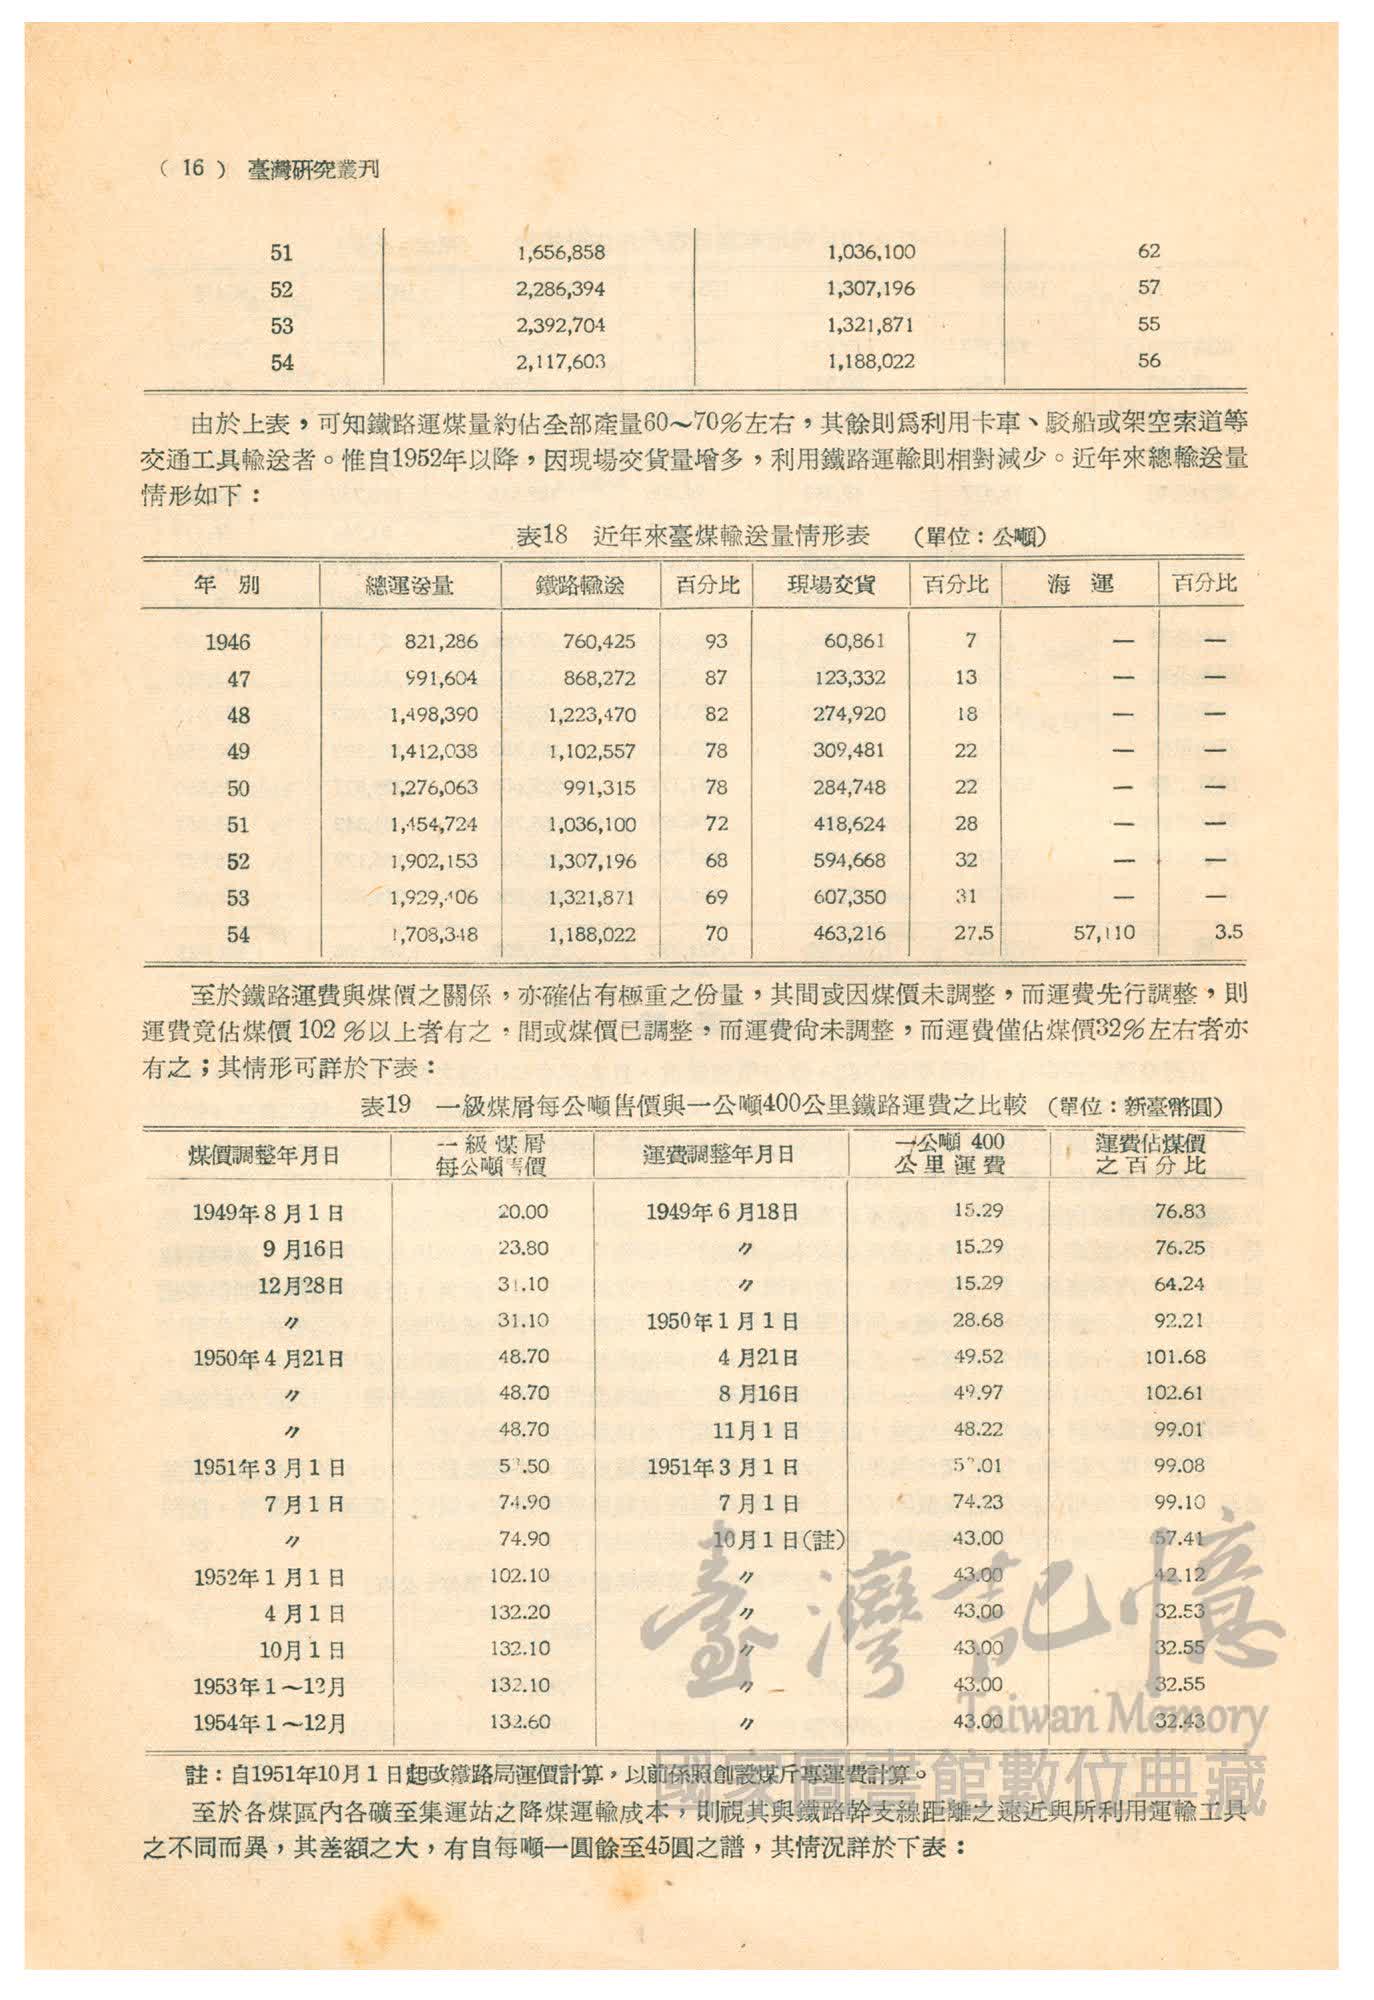 ( 16 ) 臺灣研究叢刊
51 1,656,858 1,036,100 62
52 2,286,394 1,307,196 57
53 2,392,704 1,321,871 55
54 2,117,603 1,188,022 56
由於上表，可知鐵路運煤量約佔全部產量60～70%左右，其餘則爲利用卡車、駁船或架空索道等
交通工具輸送者。惟自1952年以降，因現場交貨量增多，利用鐵路運輸則相對減少。近年來總輸送量
情形如下：
表18 近年來臺煤輸送量情形表 （單位：公噸）
年 別 總運送量 鐵路輸送 百分比 現場交貨 百分比 海 運 百分比
1946 821,286 760,425 93 60,861 7 — —
47 991,604 868,272 87 123,332 13 — —
48 1,498,390 1,223,470 82 274,920 18 — —
49 1,412,038 1,102,557 78 309,481 22 — —
50 1,276,063 991,315 78 284,748 22 — —
51 1,454,724 1,036,100 72 418,624 28 — —
52 1,902,153 1,307,196 68 594,668 32 — —
53 1,321,871 69 607,350 31 — —
54 1,708,348 1,188,022 70 463,216 27.5 57,110 3.5
至於鐵路運費與煤價之關係，亦確佔有極重之份量，其間或因煤價未調整，而運費先行調整，則
運費竟佔煤價 102 %以上者有之，間或煤價已調整，而運費尙未調整，而運費僅佔煤價32%左右者亦
有之；其情形可詳於下表：
表19 一級煤屑每公噸售價與一公噸400公里鐵路運費之比較 （單位：新臺幣圓）
煤價調整年月日 一級煤屑 每公噸售價 運費調整年月日 一公噸 400 公里運費 運費佔煤價 之百分比
1949年8月1日 20.00 1949年6月18日 15.29 76.83
9月16日 23.80 〃 15.29 76.25
12月28日 31.10 〃 15.29 64.24
〃 31.10 1950年1月1日 28.68 92.21
1950年4月21日 48.70 4月21日 49.52 101.68
〃 48.70 8月16日 49.97 102.61
〃 48.70 11月1日 48.22 99.01
1951年3月1日 1951年3月1日 99.08
7月1日 74.90 7月1日 74.23 99.10
〃 74.90 10月1日（註） 43.00 57.41
1952年1月1日 102.10 〃 43.00 42.12
4月1日 132.20 〃 43.00 32.53
10月1日 132.10 〃 43.00 32.55
1953年1～12月 132.10 〃 43.00 32.55
1954年1～12月 132.60 〃 43.00 32.43
註：自1951年10月1日起改鐵路局運價計算，以前係照創設煤斤專運費計算。
至於各煤區內各礦至集運站之降煤運輸成本，則視其與鐵路幹支線距離之遠近與所利用運輸工具
之不同而異，其差額之大，有自每噸一圓餘至45圓之譜，其情況詳於下表：
臺灣記憶
Taiwan Memory
國家圖書館數位典藏